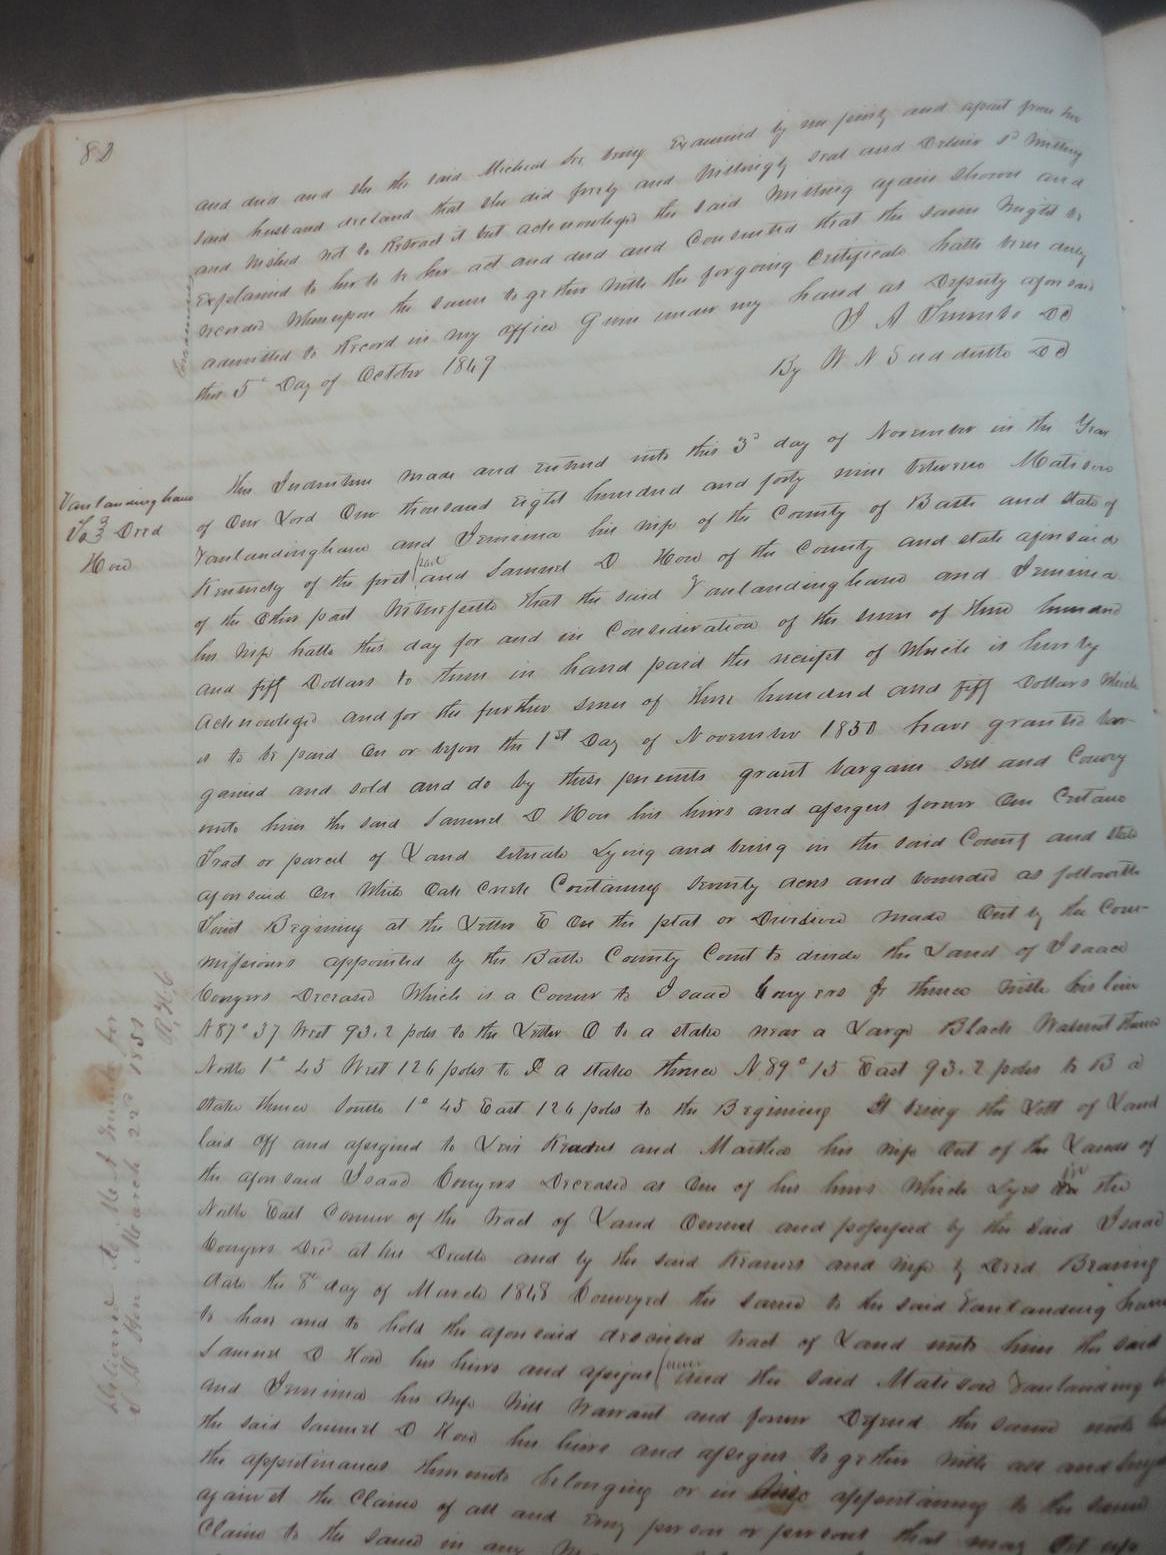 82
and deed and she the said being Examined by me privily and apart from her
said husband declared that she did freely and Willingly seal and Deliver sd Writing
and Wished not to Retract it but acknowleged the said Writing again Shown and
Explained to her to be her act and deed and Consented that the same Might be
recorded Whereupon the same together with the forgoing Certificate hath been duly
admitted to Record in my office Given under my hand as Deputy aforesaid
this 5th Day of October 1849
J A DC
By W N Sudduth DC
Vanlandingham
To } Deed
How
This Indenture made and entered into this 3d day of November in the Year
of Our Lord One thousand Eight hundred and forty nine between Matison
Vanlandingham and Jemima his Wife of the County of Bath and State of
Kentucky of the first part and Samuel D How of the County and state aforesaid
of the other part Witnesseth that the said Vanlandingham and Jemima
his Wife hath this day for and in Consideration of the sum of three hundred
and fiff Dollars to them in hand paid the receipt of Which is hereby
acknowleged and for the further sum of three hundred and fiff Dollars Which
is to be paid on or before the 1st Day of November 1850 have granted bar-
gained and sold and do by these presents grant bargain sell and Convey
unto him the said Samuel D How his heirs and assigns forever One Certain
Tract or parcel of Land situate Lying and being in the said County and state
aforesaid on White Oak Creek Containing seventy acres and bounded as followeth
Towit Begining at the Letter E on the plat or Division made out by the Com-
missioners appointed by the Bath County Court to devide the Land of Isaac
Congers Deceased Which is a Corner to Isaac Congers Jr thence With his line
N 87° 37 West 93.2 poles to the Letter O to a stake near a Large Black Walnut thence
North 1° 45 West 126 poles to I a stake thence N 89° 15 East 93.2 poles to B a
stake thence South 1° 45 East 126 poles to the Begining It being the Lott of Land
laid off and assigned to and Martha his Wife out of the Lands of
the aforesaid Isaac Congers Deceased as One of his heirs Which Lyes in the
North East Corner of the tract of Land Owned and possessed by the said Isaac
Congers Decd at his Death and by the said and Wife by Deed Bearing
date the 8th day of March 1848 Conveyed the same to the said Vanlandingham
to have and to hold the aforesaid described tract of Land unto him the said
Samuel D How his heirs and assigns forever and the said Matison Vanlandingham
and Jemima his Wife Will Warrant and forever Defend the same unto
the said Samuel D How his heirs and assigns together with all and
the appertinances thereunto belonging or in appertaining to the same
against the Claims of all and Every person or persons that may set up
Claim to the same in any
Delivered to
March 22d 1851